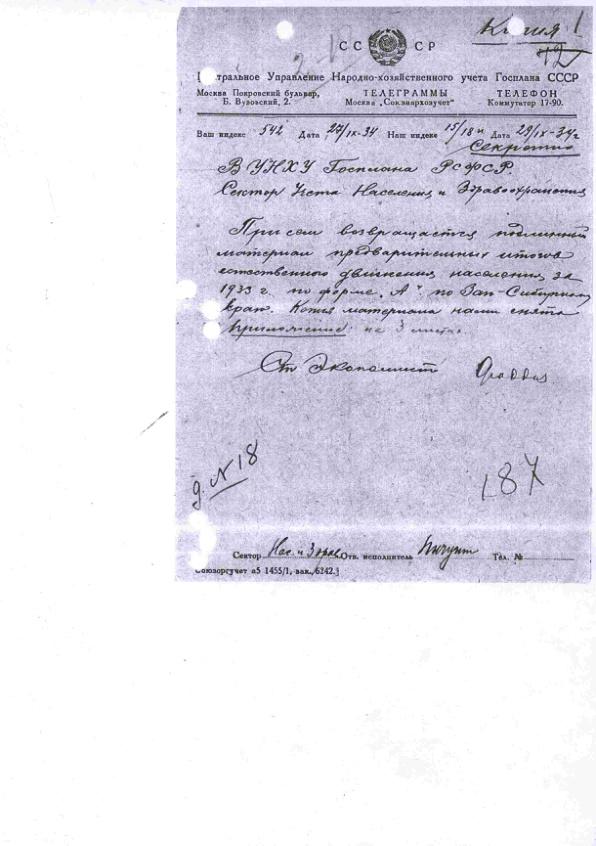 Копия 1
12
СС СР
Центральное Управление Народно-хозяйственного учета Госплана СССР
Москва Покровский бульвар,
Б. Вузовский, 2.
ТЕЛЕГРАММЫ
Москва „Союзнархозучет“
ТЕЛЕФОН
Коммутатор 17-90.
Ваш индекс 542 Дата 27/IX-34 Наш индекс 15/18 Дата 29/IX-34г
Секретно
В УНХУ Госплана РСФСР.
Сектор Учета Населения и Здравоохранения
При сем возвращается подлинный
материал предварительных итогов
естественного движения населения за
1933 г. по форме „А“ по Зап-Сибирскому
краю. Копия материала нами снята
Приложение: на 3 листах.
Ст Экономист
д. N 18
187
Сектор Нас. и Здрав. Отв. исполнитель Тел. №
Союзоргучет а5 1455/1, зак. 6242.